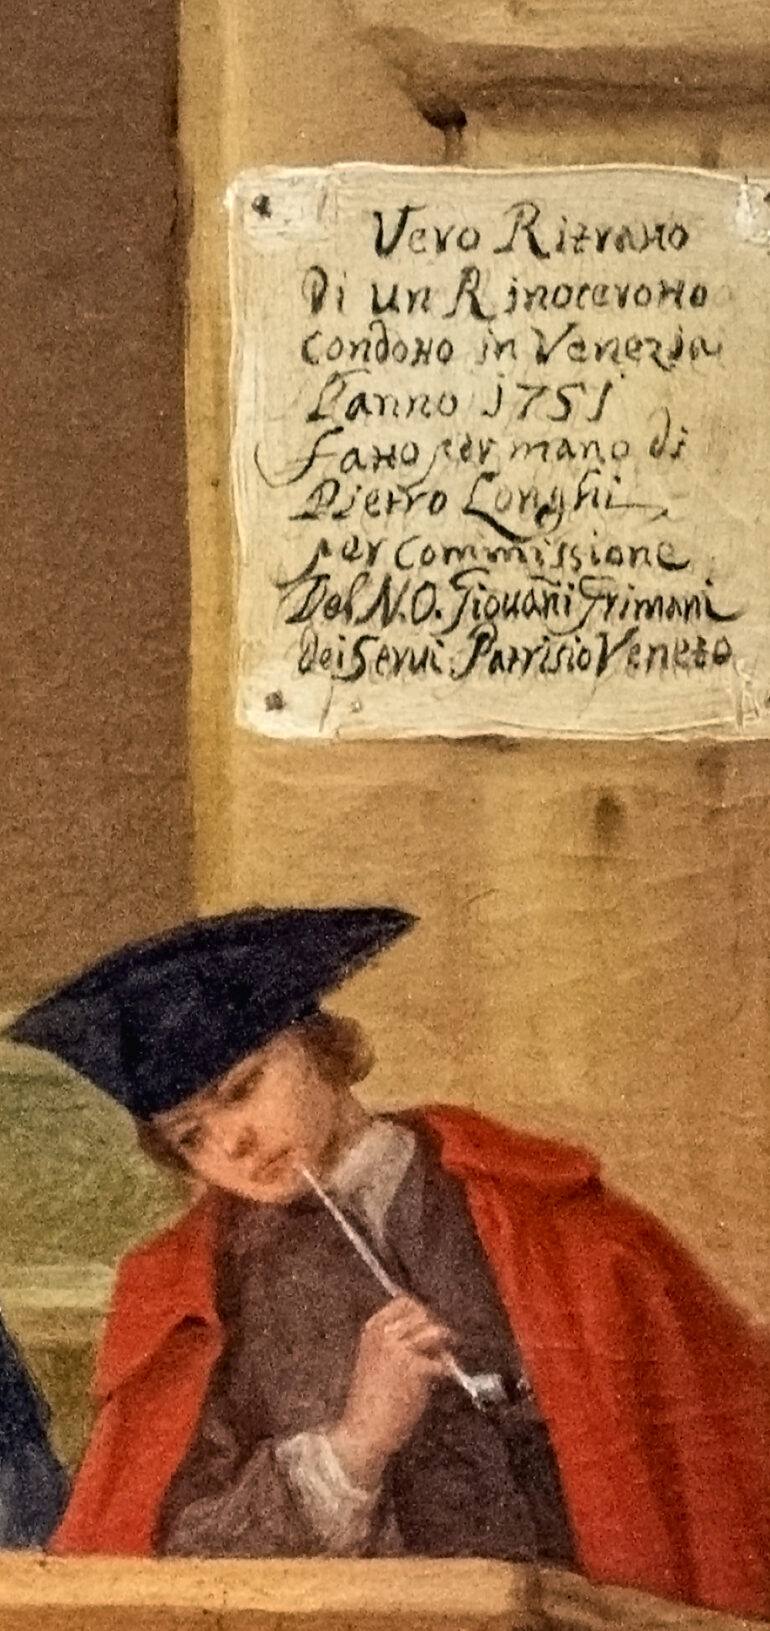 Vero Ritratto
Di un Rinocerotto
condotto in Venezia
L'anno 1751
fatto per mano di
Pietro Longhi
per Commissione
Del N.O. Giouañi Grimani
dei Serui Patrizio Veneto